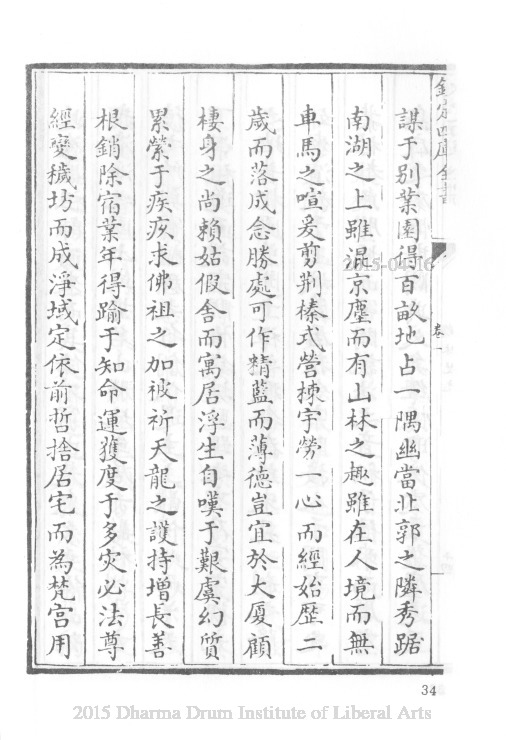 欽定四庫全書
卷一
謀于别業園得百畝地占一隅幽當北郭之隣秀踞
南湖之上雖混京塵而有山林之趣雖在人境而無
車馬之喧爰剪荆榛式營棟宇勞一心而經始歴二
歳而落成念勝處可作精藍而薄徳豈宜於大厦顧
棲身之尚賴姑假舍而寓居浮生自嘆于艱虞幻質
累縈于疾疢求佛祖之加被祈天龍之護持增長善
根銷除宿業年得踰于知命運獲度于多灾必法尊
經變穢坊而成淨域定依前哲捨居宅而為梵宫用
2015-04-16
34
2015 Dharma Drum Institute of Liberal Arts